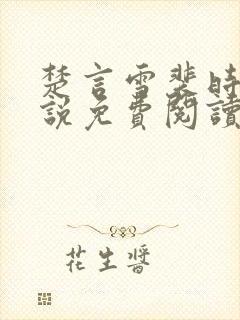 楚言雪裴時
說免費閱讀
花生醬